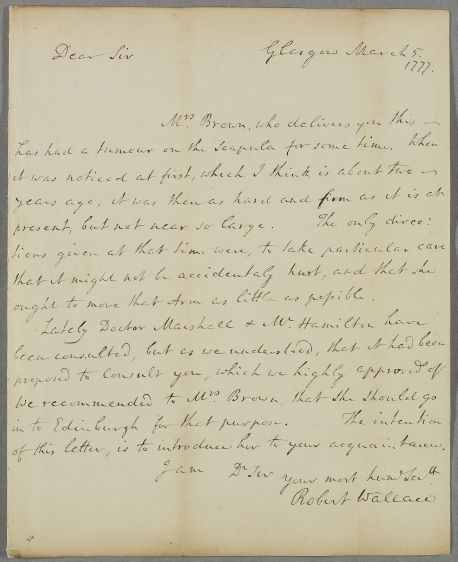 Dear Sir Glasgow March 5.
1777.
Mrs Brown, who delivers you this
has had a tumour on the Scapula for some time. When
it was noticed at first, which I think is about two
years ago, it was then as hard and firm as it is at
present, but not near so large. The only direc:
tions given at that time were, to take particular care
that it might not be accidentaly hurt, and that she
ought to move that Arm as little as possible.
Lately Doctor Marshall & Mr. Hamilton have
been consulted, but as we understood, that it had been
proposed to consult you, which we highly approved of
we recommended to Mrs Brown, that she should go
in to Edinburgh for that purpose. The intention
of this letter, is to introduce her to your acquaintance.
I am Dr Sir your most humle Servtt
Robert Wallace